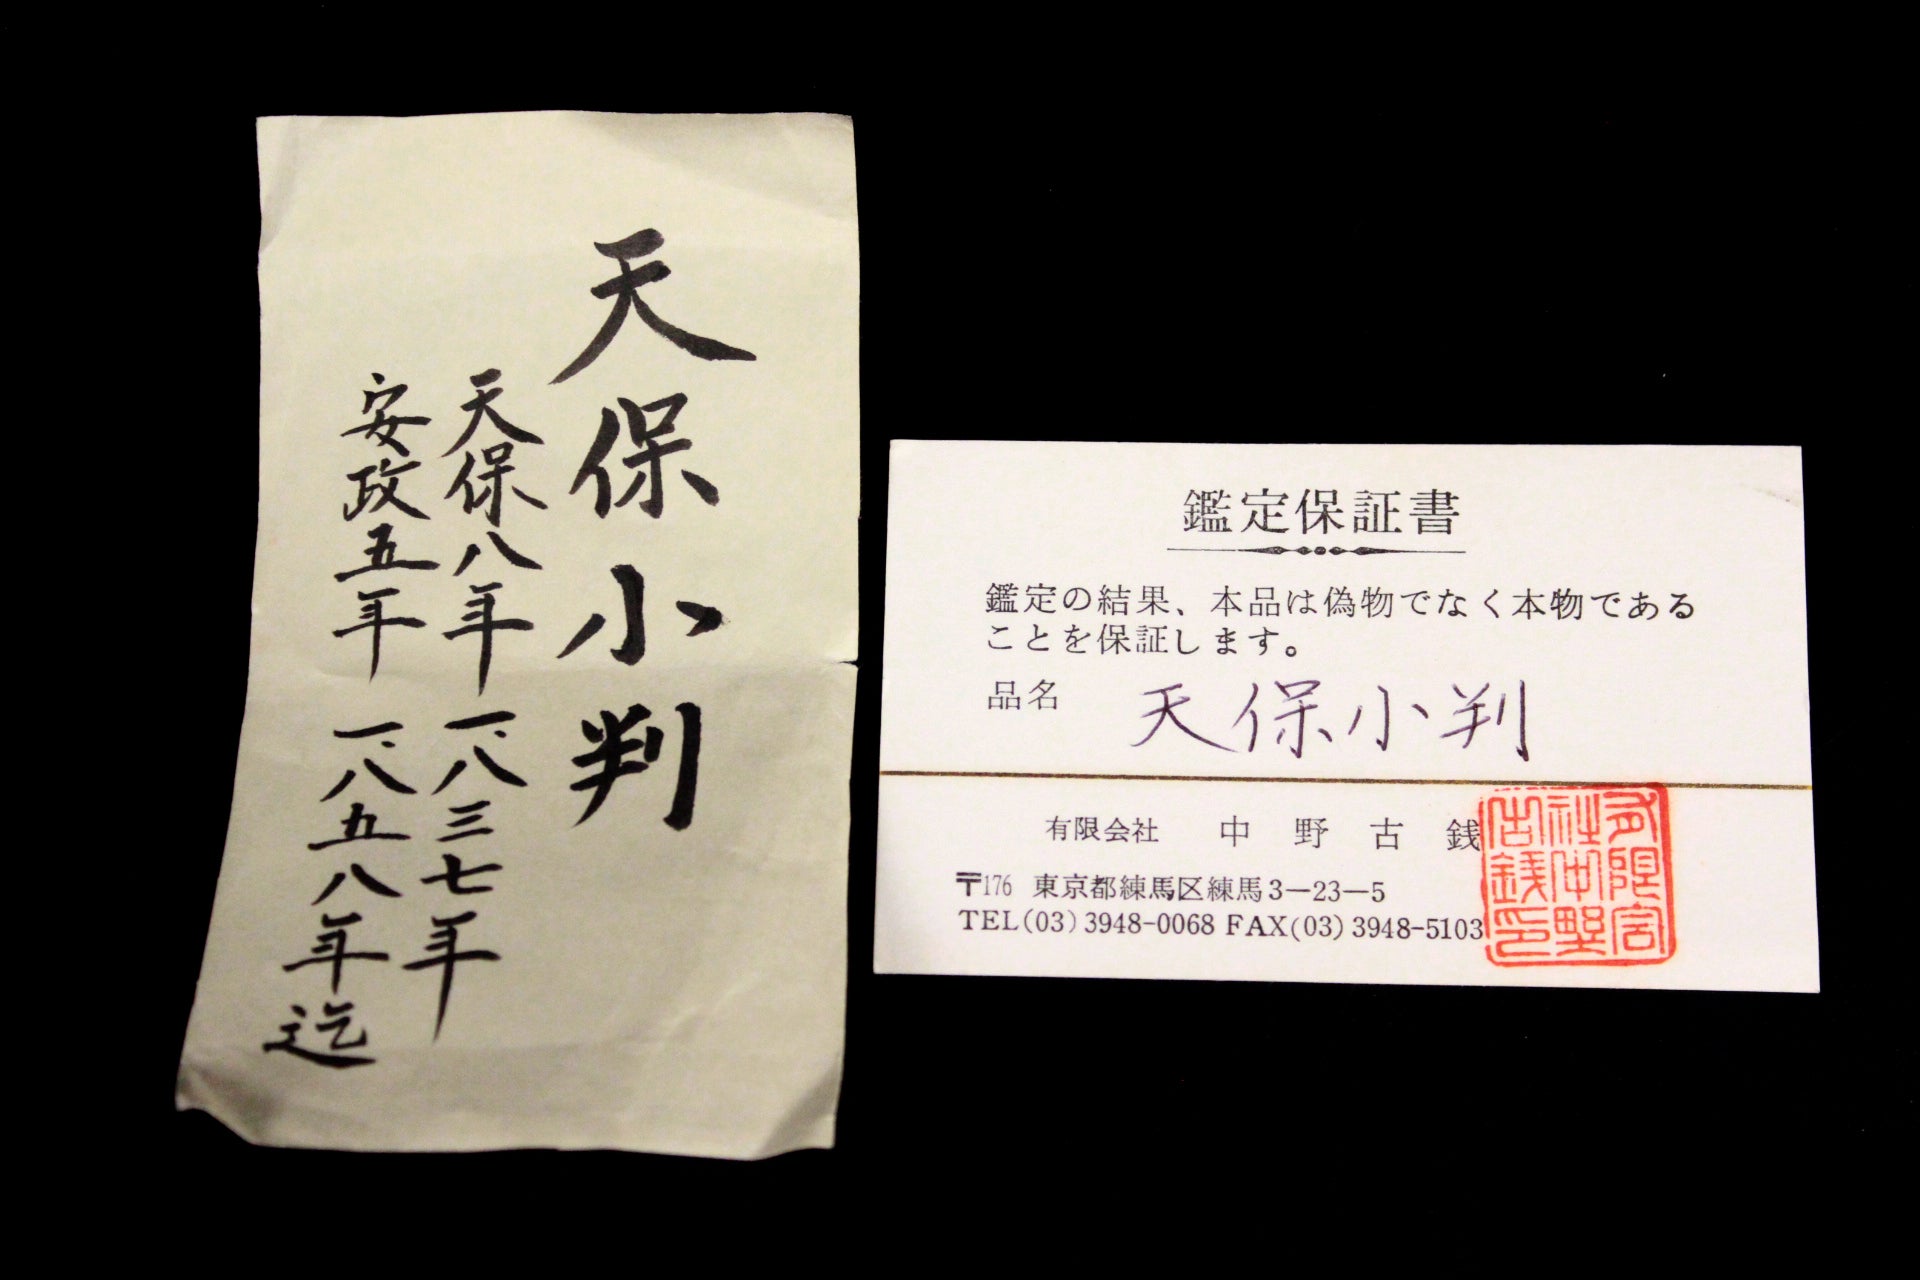 天保小判
天保八年 一、八三七年
安政五年 一、八五八年迄
鑑定保証書
鑑定の結果、本品は偽物でなく本物である
ことを保証します。
品名 天保小判
有限会社 中野古銭
〒176 東京都練馬区練馬3−23−5
TEL(03)3948-0068 FAX(03)3948-5103
有限会
社中野
古銭印